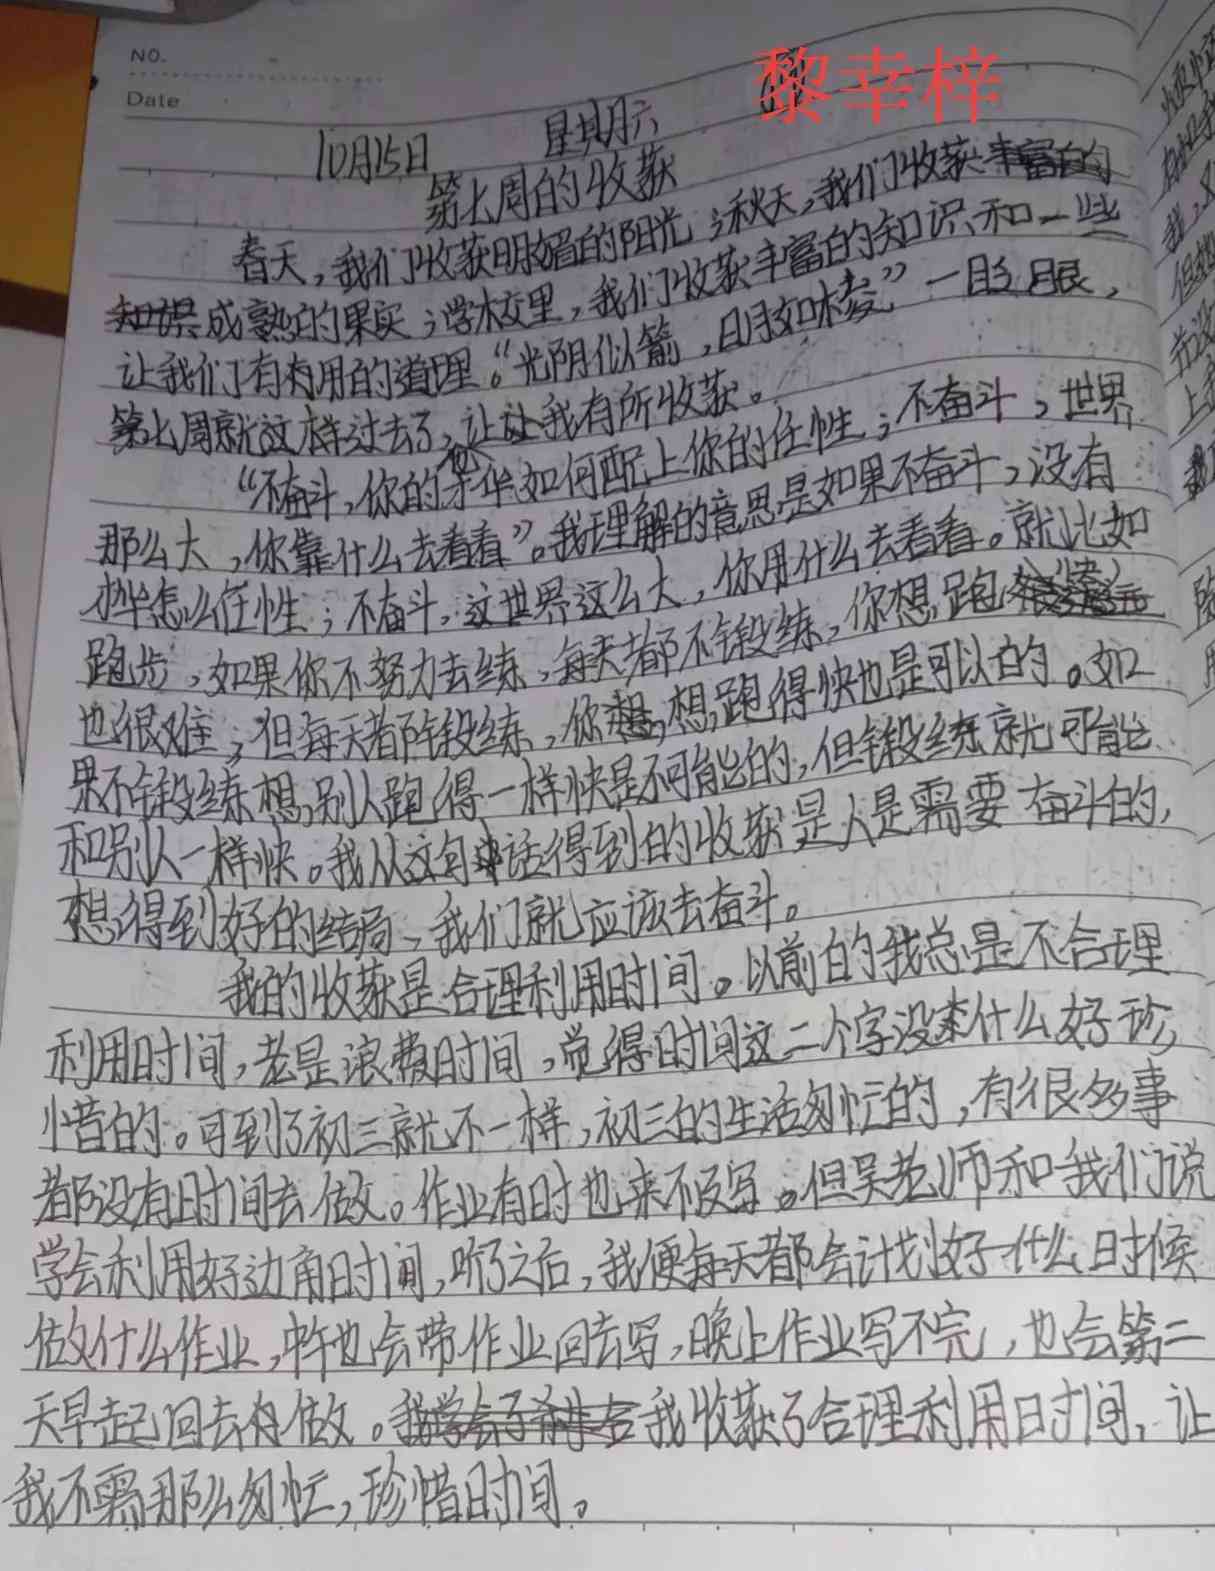 NO.
Date
黎幸梓
10月15日 星期六
第七周的收获
春天,我们收获明媚的阳光;秋天,我们收获丰富的
知识成熟的果实;学校里,我们收获丰富的知识和一些
让我们有有用的道理。“光阴似箭,日月如梭”一眨眼,
第七周就这样过去了,让让我有所收获。
“不奋斗,你的才华如何配上你的任性;不奋斗,世界
那么大,你靠什么去看看”。我理解的意思是如果不奋斗,没有
才华怎么任性;不奋斗,这世界这么大,你用什么去看看。就比如
跑步,如果你不努力去练,每天都不锻练,你想跑
也很难;但每天都锻练,你想,想跑得快也是可以的。如
果不锻练想别人跑得一样快是不可能的,但锻练就可能
和别人一样快。我从这句话得到的收获是人是需要奋斗的,
想得到好的结局,我们就应该去奋斗。
我的收获是合理利用时间。以前的我总是不合理
利用时间,老是浪费时间,觉得时间这二个字没什么好珍
惜的。可到了初三就不一样,初三的生活匆忙的,有很多事
都没有时间去做。作业有时也来不及写。但吴老师和我们说
学会利用好边角时间,听了之后,我便每天都会计划好什么时候
做什么作业,中午也会带作业回去写,晚上作业写不完,也会第二
天早起回去做。我学会了我收获了合理利用时间,让
我不需那么匆忙,珍惜时间。